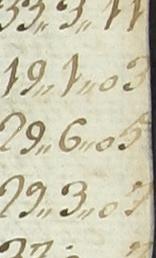 33„ 3„ 11
19„ 1„ 03
29„ 6„ 05
29„ 3„ 0